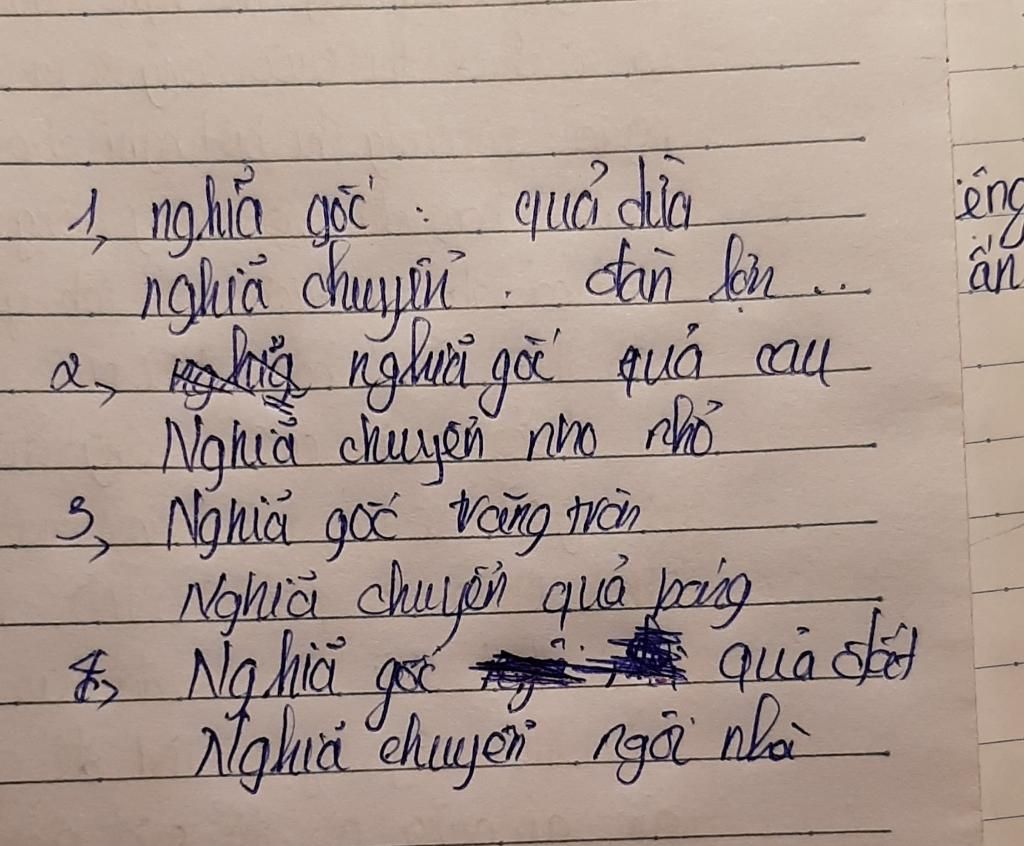 1, nghĩa gốc : quả dừa
nghĩa chuyển . đàn lợn ...
2, nghĩa gốc quả cau
Nghĩa chuyển nho nhỏ
3, Nghĩa gốc trăng tròn
Nghĩa chuyển quả bóng
4, Nghĩa gốc quả đất
Nghĩa chuyển ngôi nhà